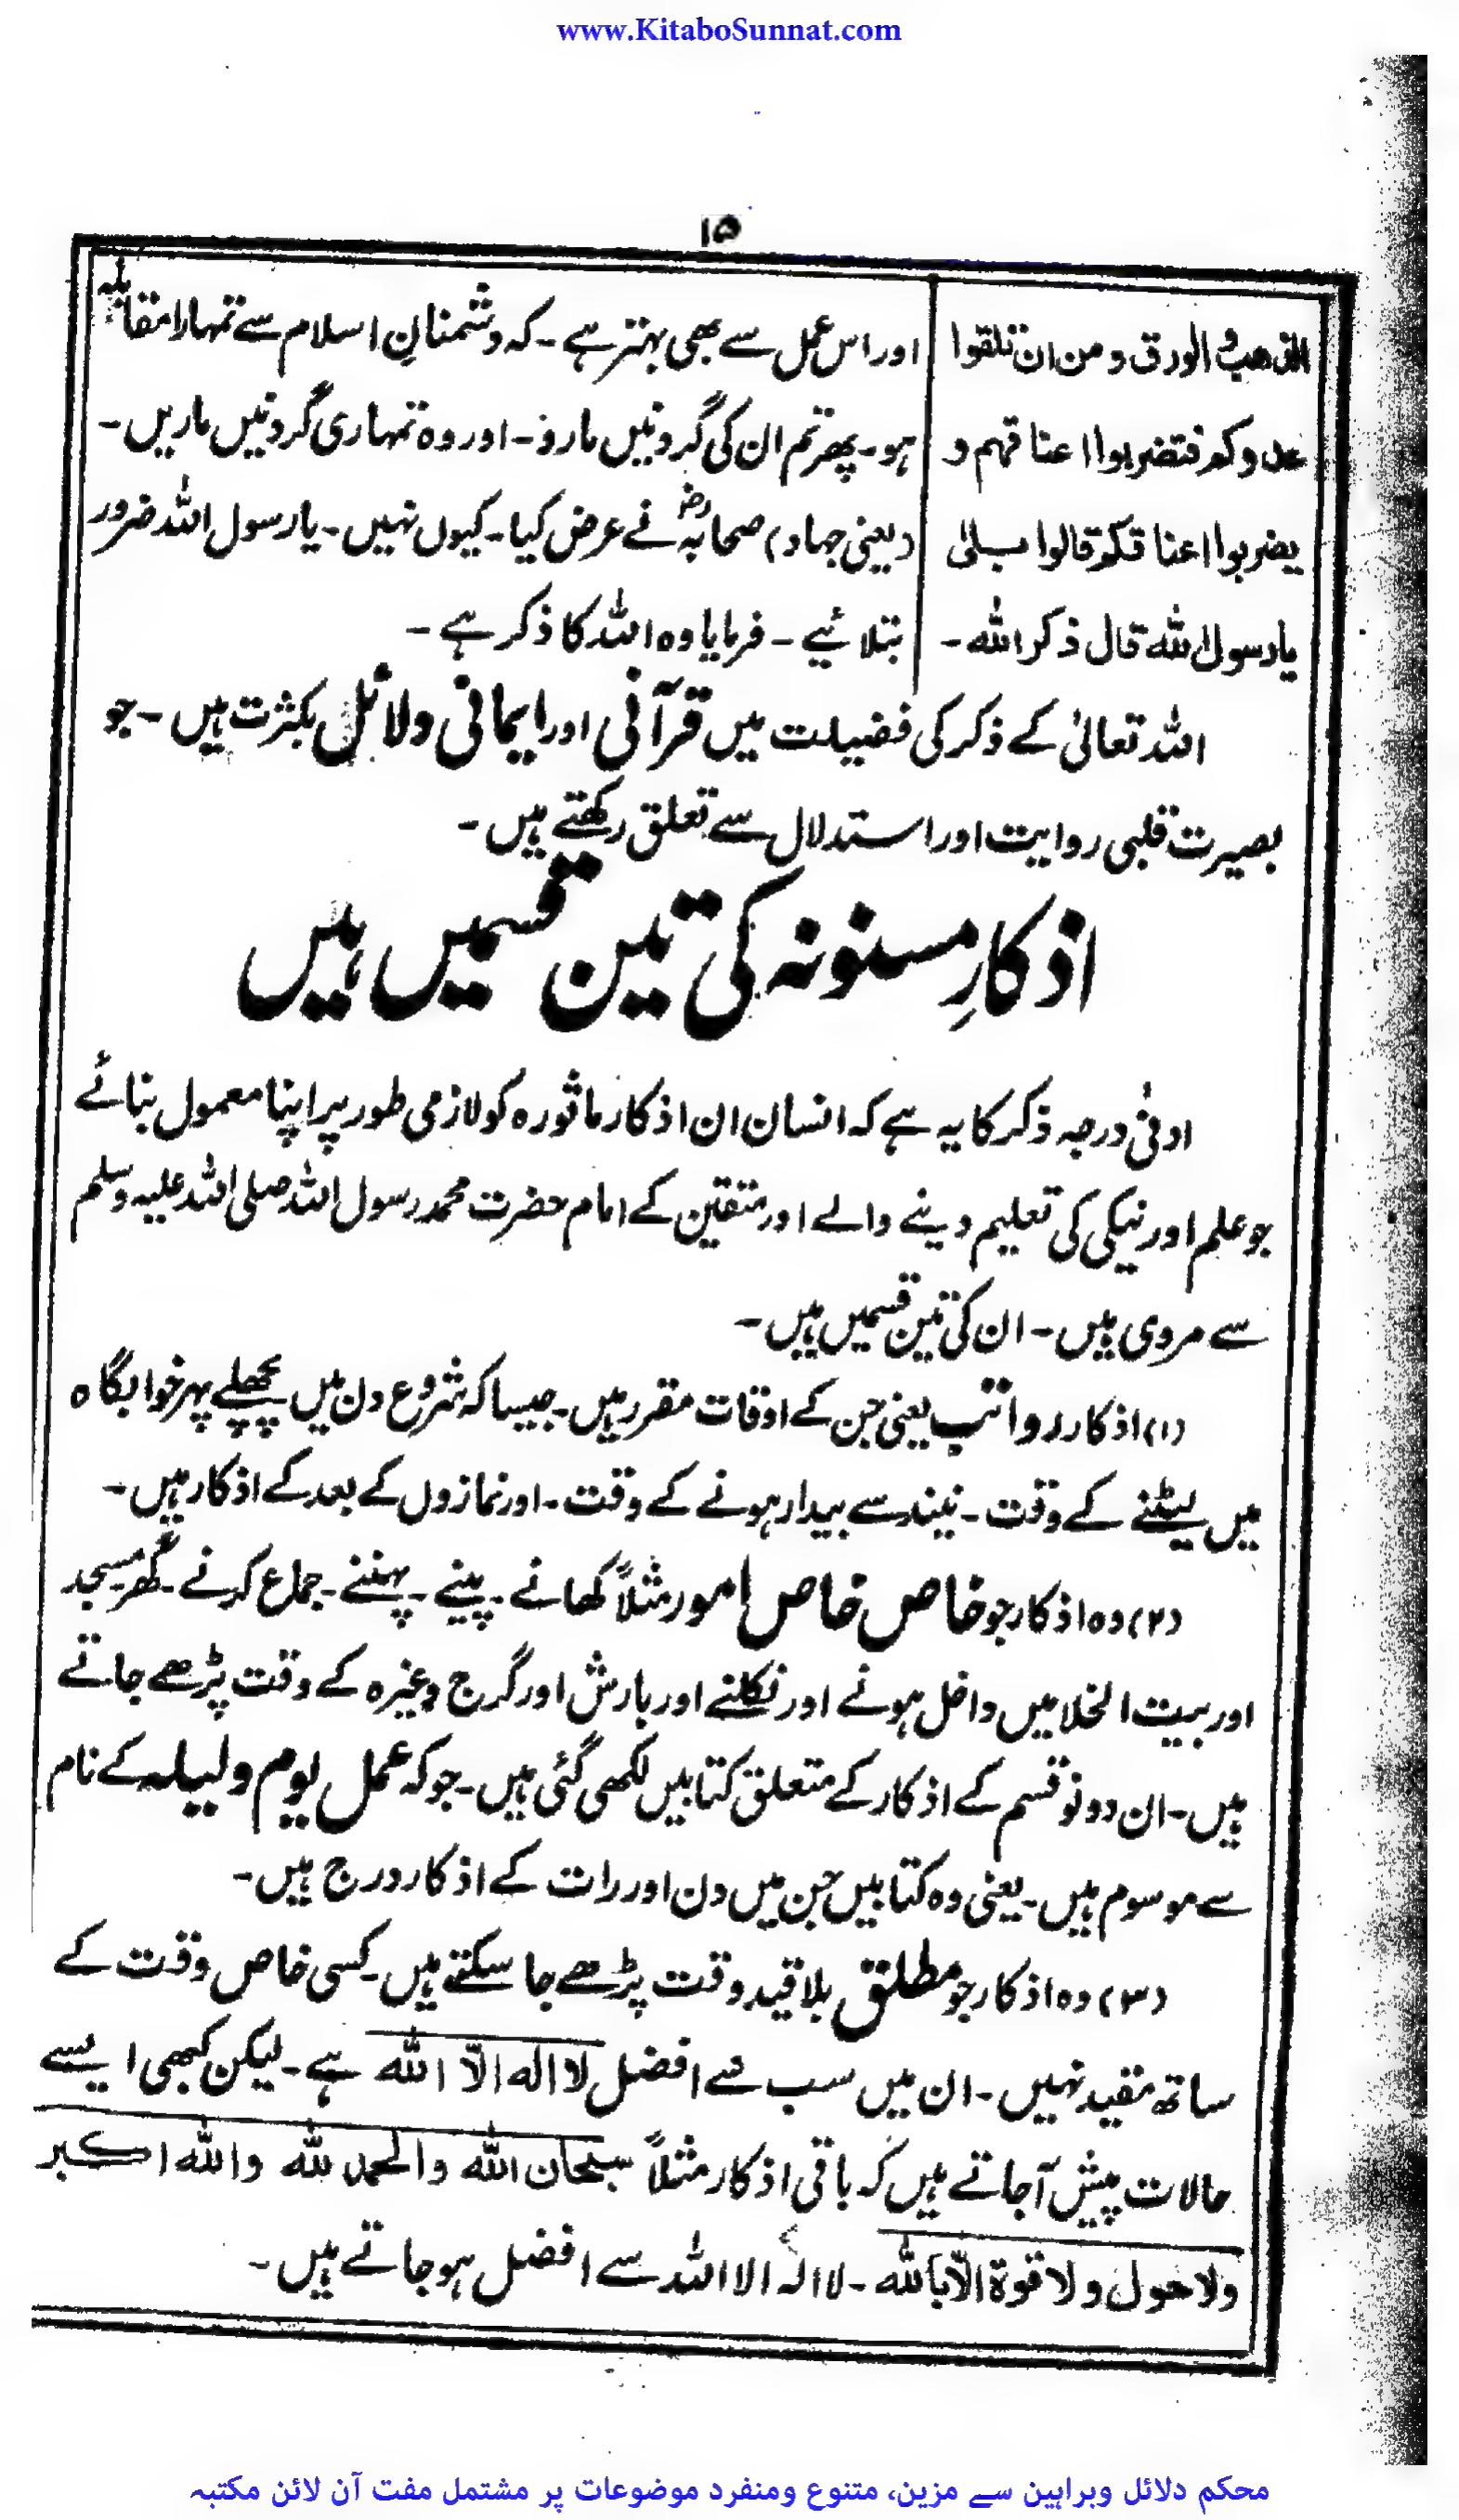 www.KitaboSunnat.com
۱۵
الذهب والورق ومن ان تلقوا
عدوكم فتضربوا اعناقهم و
يضربوا اعناقكم قالوا بلىٰ
يارسول الله قال ذكر الله ۔
اور اس عمل سے بھی بہتر ہے ۔ کہ دشمنانِ اسلام سے تمہارا مقابلہ
ہو ۔ پھر تم ان کی گردنیں مارو ۔ اور وہ تمہاری گردنیں ماریں ۔
(یعنی جہاد) صحابہؓ نے عرض کیا ۔ کیوں نہیں ۔ یا رسول اللہ ضرور
بتلائیے ۔ فرمایا وہ اللہ کا ذکر ہے ۔
اللہ تعالیٰ کے ذکر کی فضیلت میں قرآنی اور ایمانی دلائل بکثرت ہیں ۔ جو
بصیرت قلبی روایت اور استدلال سے تعلق رکھتے ہیں ۔
اذکارِ مسنونہ کی تین قسمیں ہیں
ادنیٰ درجہ ذکر کا یہ ہے کہ انسان ان اذکار ماثورہ کو لازمی طور پر اپنا معمول بنائے
جو علم اور نیکی کی تعلیم دینے والے اور متقین کے امام حضرت محمد رسول اللہ صلی اللہ علیہ وسلم
سے مروی ہیں ۔ ان کی تین قسمیں ہیں ۔
(۱) اذکار رواتب یعنی جن کے اوقات مقرر ہیں ۔ جیسا کہ شروع دن میں پچھلے پہر خوابگاہ
میں لیٹنے کے وقت ۔ نیند سے بیدار ہونے کے وقت ۔ اور نمازوں کے بعد کے اذکار ہیں ۔
(۲) وہ اذکار جو خاص خاص امور مثلاً کھانے ۔ پینے ۔ پہننے ۔ جماع کرنے ۔ گھر ۔ مسجد
اور بیت الخلا میں داخل ہونے اور نکلنے اور بارش اور گرج وغیرہ کے وقت پڑھے جاتے
ہیں ۔ ان دونو قسم کے اذکار کے متعلق کتابیں لکھی گئی ہیں ۔ جو کہ عمل یوم ولیلہ کے نام
سے موسوم ہیں ۔ یعنی وہ کتابیں جن میں دن اور رات کے اذکار درج ہیں ۔
(۳) وہ اذکار جو مطلق بلا قید وقت پڑھے جا سکتے ہیں ۔ کسی خاص وقت کے
ساتھ مقید نہیں ۔ ان میں سب سے افضل لا الہ الّا اللہ ہے ۔ لیکن کبھی ایسے
حالات پیش آجاتے ہیں کہ باقی اذکار مثلاً سبحان اللہ والحمد للہ واللہ اکبر
ولا حول ولا قوۃ الّا باللہ ۔ لا الہ الا اللہ سے افضل ہو جاتے ہیں ۔
محکم دلائل وبراہین سے مزین، متنوع ومنفرد موضوعات پر مشتمل مفت آن لائن مکتبہ